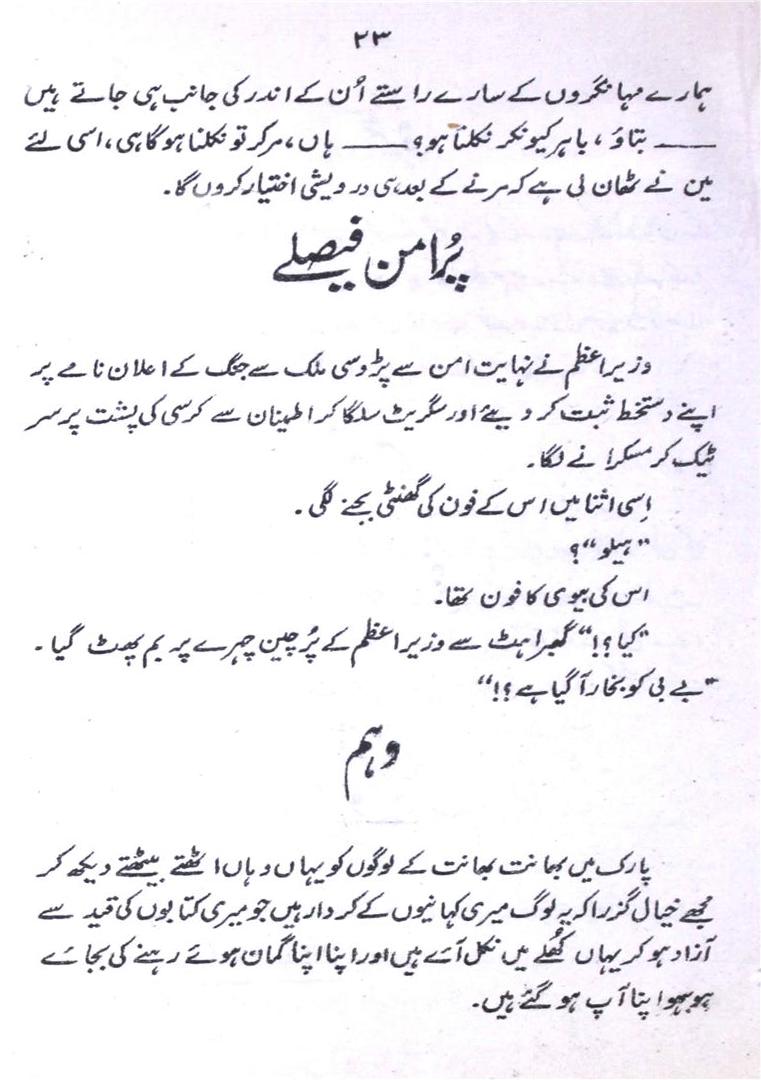 ۲۳
ہمارے مہانگروں کے سارے راستے اُن کے اندر کی جانب ہی جاتے ہیں
—— بتاؤ، باہر کیونکر نکلنا ہو؟ —— ہاں، مر کر تو نکلنا ہوگا ہی، اسی لئے
میں نے ٹھان لی ہے کہ مرنے کے بعد ہی درویشی اختیار کروں گا۔
پُرامن فیصلے
وزیراعظم نے نہایت امن سے پڑوسی ملک سے جنگ کے اعلان نامے پر
اپنے دستخط ثبت کر دیئے اور سگریٹ سلگا کر اطمینان سے کرسی کی پشت پر سر
ٹیک کر مسکرانے لگا۔
اِسی اثنا میں اس کے فون کی گھنٹی بجنے لگی۔
"ہیلو"؟
اس کی بیوی کا فون تھا۔
"کیا؟!" گھبراہٹ سے وزیراعظم کے پُرچین چہرے پہ بم پھٹ گیا۔
"بے بی کو بخار آ گیا ہے؟!"
وہم
پارک میں بھانت بھانت کے لوگوں کو یہاں وہاں اٹھتے بیٹھتے دیکھ کر
مجھے خیال گزرا کہ یہ لوگ میری کہانیوں کے کردار ہیں جو میری کتابوں کی قید سے
آزاد ہو کر یہاں کُھلے میں نکل آئے ہیں اور اپنا اپنا گمان ہوئے رہنے کی بجائے
ہوبہو اپنا آپ ہو گئے ہیں۔